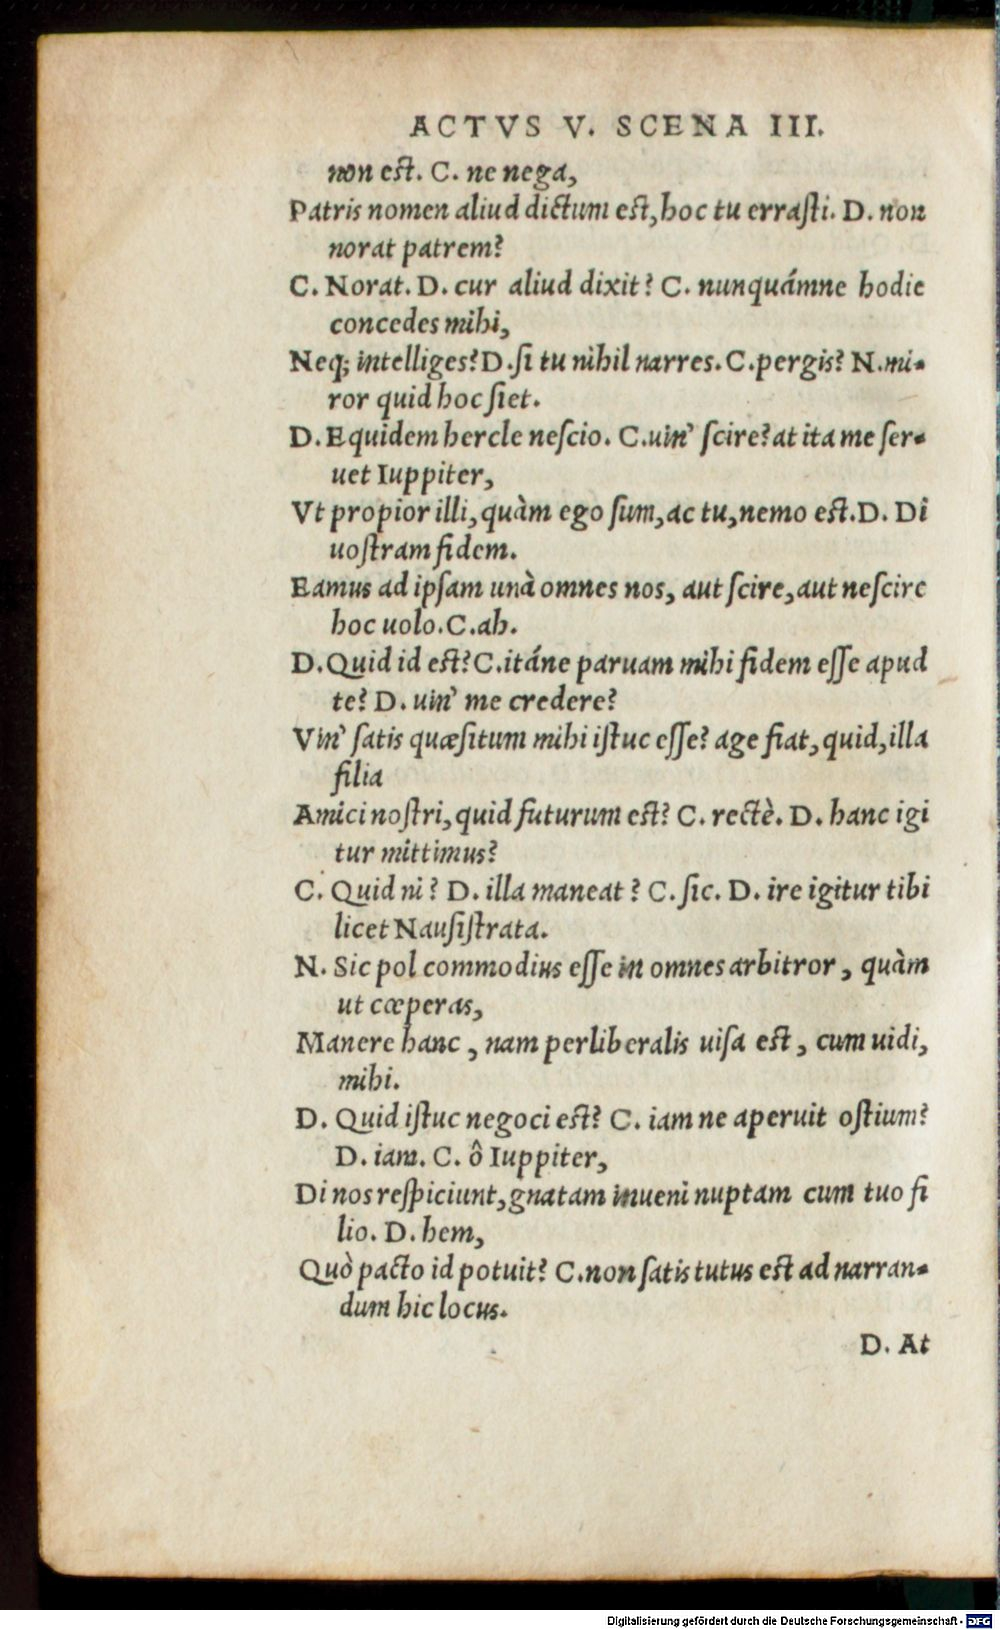 ACTVS V. SCENA III.
non est. C. ne nega,
Patris nomen aliud dictum est, hoc tu errasti. D. non
norat patrem?
C. Norat. D. cur aliud dixit? C. nunquámne hodie
concedes mihi,
Neq; intelliges? D. si tu nihil narres. C. pergis? N. mi-
ror quid hoc siet.
D. Equidem hercle nescio. C. uin' scire? at ita me ser-
uet Iuppiter,
Vt propior illi, quàm ego sum, ac tu, nemo est. D. Di
uostram fidem.
Eamus ad ipsam unà omnes nos, aut scire, aut nescire
hoc uolo. C. ah.
D. Quid id est? C. itáne paruam mihi fidem esse apud
te? D. uin' me credere?
Vin' satis quæsitum mihi istuc esse? age fiat, quid, illa
filia
Amici nostri, quid futurum est? C. rectè. D. hanc igi
tur mittimus?
C. Quid ni? D. illa maneat? C. sic. D. ire igitur tibi
licet Nausistrata.
N. Sic pol commodius esse in omnes arbitror, quàm
ut cœperas,
Manere hanc, nam perliberalis uisa est, cum uidi,
mihi.
D. Quid istuc negoci est? C. iam ne aperuit ostium?
D. iam. C. ô Iuppiter,
Di nos respiciunt, gnatam inueni nuptam cum tuo fi
lio. D. hem,
Quò pacto id potuit? C. non satis tutus est ad narran-
dum hic locus.
D. At
Digitalisierung gefördert durch die Deutsche Forschungsgemeinschaft - DFG